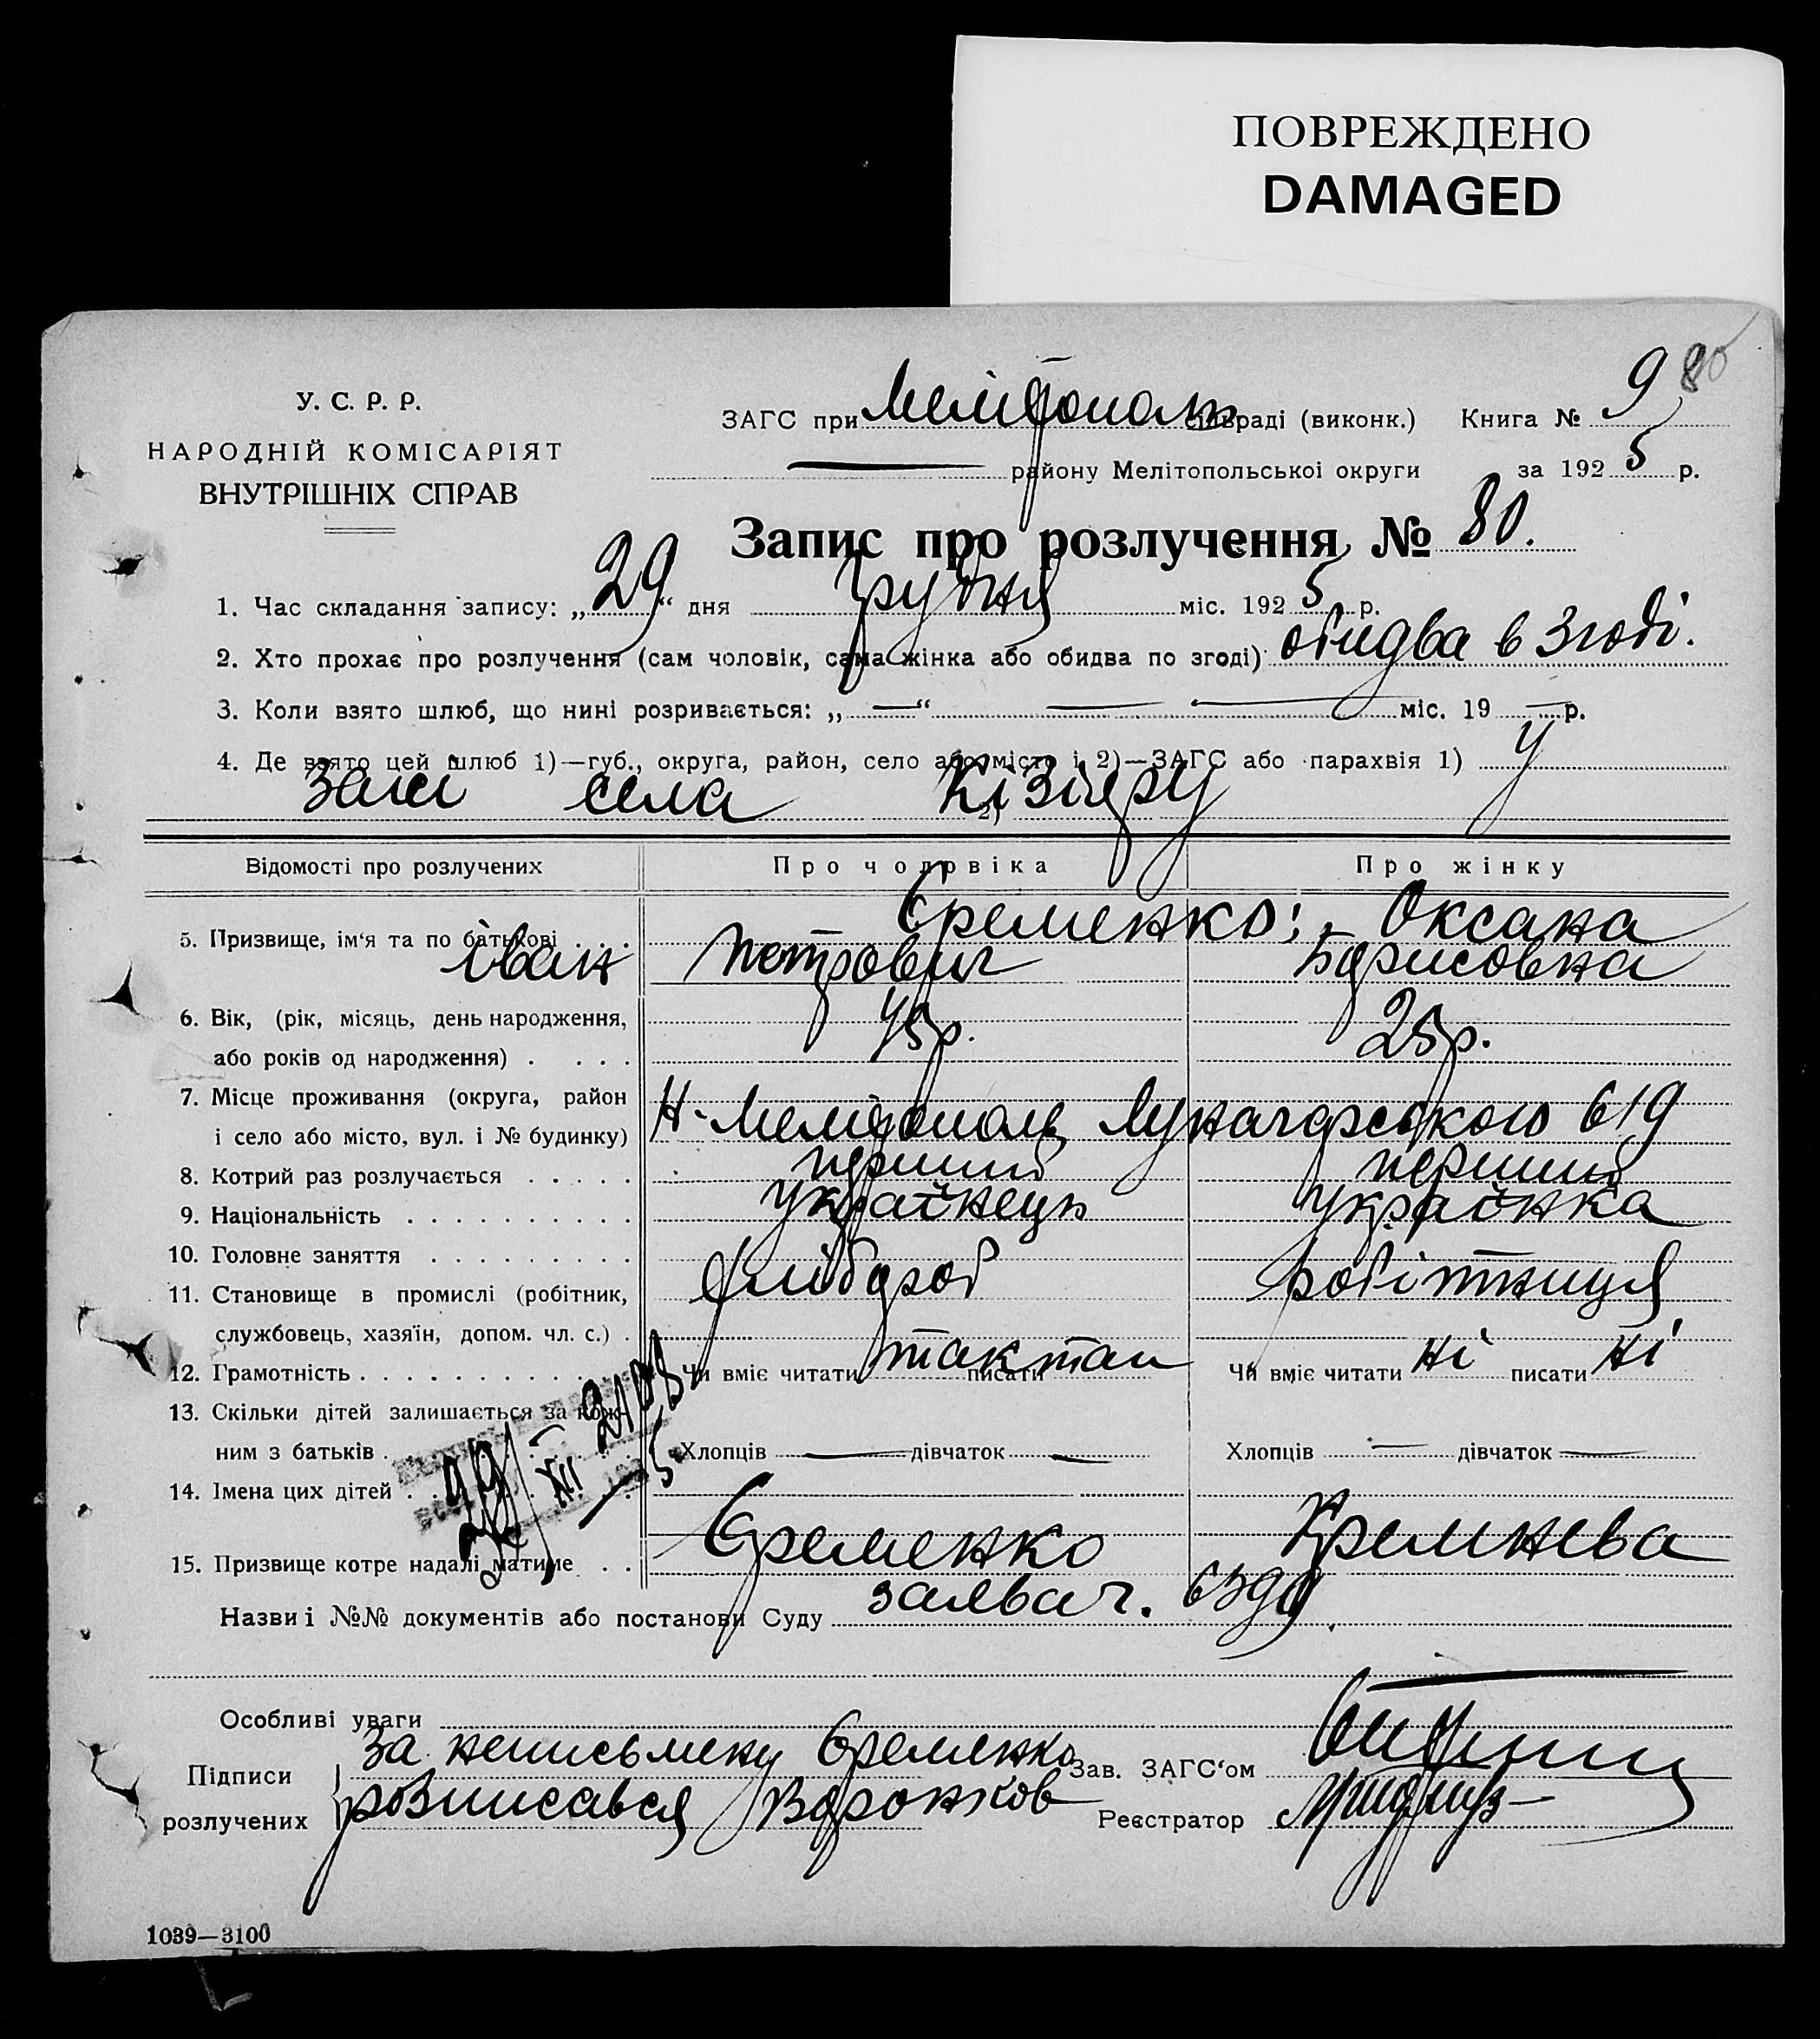 ПОВРЕЖДЕНО
DAMAGED
80
У. С. Р. Р.
НАРОДНІЙ КОМІСАРІЯТ
ВНУТРІШНІХ СПРАВ
ЗАГС при Мелітополь сільраді (виконк.) Книга № 9
— району Мелітопольської округи за 1925 р.
Запис про розлучення № 80.
1. Час складання запису: „29“ дня Грудня міс. 1925 р.
2. Хто прохає про розлучення (сам чоловік, сама жінка або обидва по згоді) обидва в згоді.
3. Коли взято шлюб, що нині розривається: „—“ — — міс. 19 — р.
4. Де взято цей шлюб 1)—губ., округа, район, село або місто і 2)—ЗАГС або парахвія 1) у
Загсі села 2) Кізіяру
Відомості про розлучених Про чоловіка Про жінку
5. Призвище, ім'я та по батькові . . . Єременко; Оксана
іван Петрович Борисовна
6. Вік, (рік, місяць, день народження, 45р. 25р.
або років од народження) . . . .
7. Місце проживання (округа, район
і село або місто, вул. і № будинку) Н-Мелітополь Луначарського 619
8. Котрий раз розлучається . . . . . перший перший
9. Національність . . . . . . . . . . українець українка
10. Головне заняття . . . . . . . . .
11. Становище в промислі (робітник, Хлібороб робітниця
службовець, хазяїн, допом. чл. с.) .
12. Грамотність . . . . . . . . . . . Чи вміє читати так писати так Чи вміє читати ні писати ні
13. Скільки дітей залишається за кож-
ним з батьків . Хлопців — дівчаток — Хлопців — дівчаток —
14. Імена цих дітей . .
29/XII 5
15. Призвище котре надалі матиме . . Єременко Кремнева
Назви і №№ документів або постанови Суду заява ч.
Особливі уваги
Підписи розлучених За неписьмену Єременко
розписався Воронков
Зав. ЗАГС'ом
Реєстратор
1039—3100